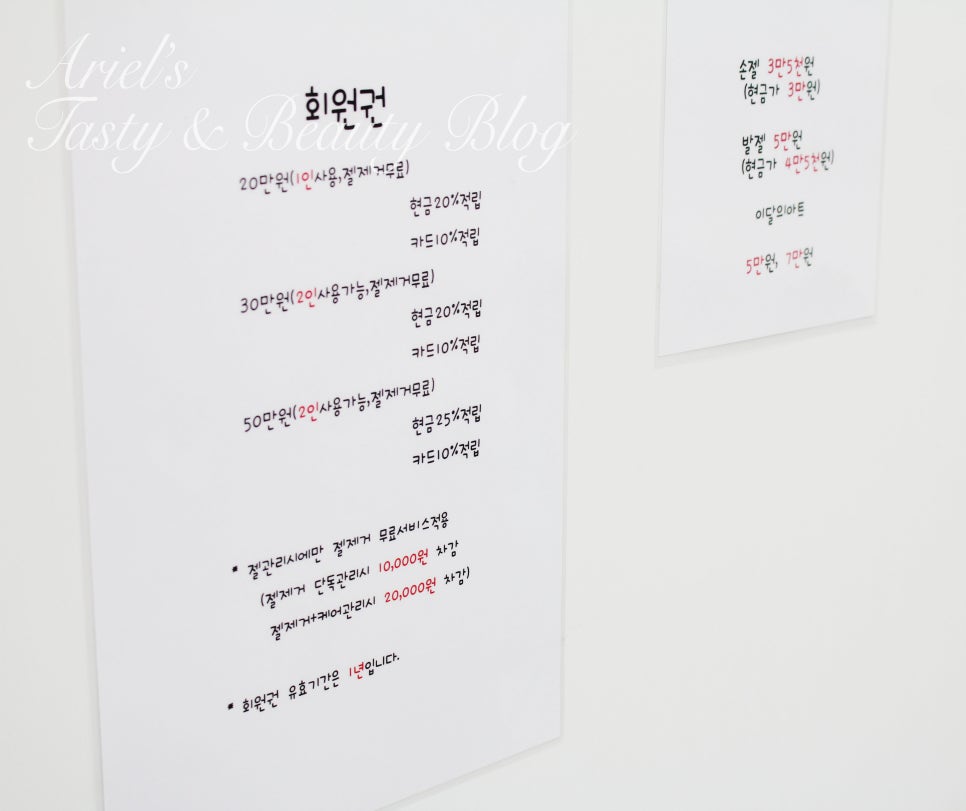 Ariel's
Tasty & Beauty Blog
회원권
20만원(1인사용,젤제거무료)
현금20%적립
카드10%적립
30만원(2인사용가능,젤제거무료)
현금20%적립
카드10%적립
50만원(2인사용가능,젤제거무료)
현금25%적립
카드10%적립
* 젤관리시에만 젤제거 무료서비스적용
(젤제거 단독관리시 10,000원 차감
젤제거+케어관리시 20,000원 차감)
* 회원권 유효기간은 1년입니다.
손젤 3만5천원
(현금가 3만원)
발젤 5만원
(현금가 4만5천원)
이달의아트
5만원, 7만원